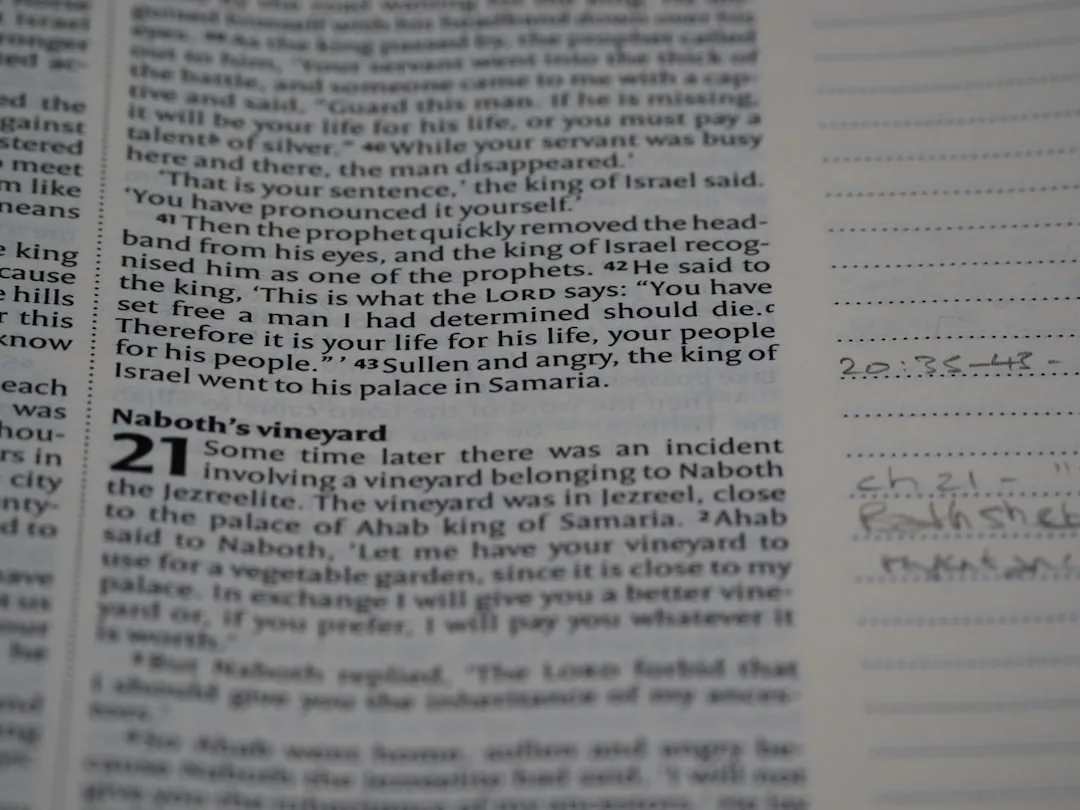 Israel
ronger
ted ac-
ed the
gainst
stered
meet
m like
means
e king
cause
e hills
r this
know
each
was
hou-
rs in
city
nty-
d to
have
eyes. As the king passed by, the prophet called
out to him, "Your servant went into the thick of
the battle, and someone came to me with a cap-
tive and said, "Guard this man. If he is missing,
it will be your life for his life, or you must pay a
talentᵇ of silver." 40 While your servant was busy
here and there, the man disappeared.'
'That is your sentence,' the king of Israel said.
'You have pronounced it yourself.'
41 Then the prophet quickly removed the head-
band from his eyes, and the king of Israel recog-
nised him as one of the prophets. 42 He said to
the king, 'This is what the LORD says: "You have
set free a man I had determined should die.ᶜ
Therefore it is your life for his life, your people
for his people." ' 43 Sullen and angry, the king of
Israel went to his palace in Samaria.
Naboth's vineyard
21 Some time later there was an incident
involving a vineyard belonging to Naboth
the Jezreelite. The vineyard was in Jezreel, close
to the palace of Ahab king of Samaria. 2 Ahab
said to Naboth, 'Let me have your vineyard to
use for a vegetable garden, since it is close to my
palace. In exchange I will give you a better vine-
yard or, if you prefer, I will pay you whatever it
is worth.'
3 But Naboth replied, 'The LORD forbid that
I should give you the inheritance of my ances-
tors.'
4 So Ahab went home, sullen and angry be-
cause Naboth the Jezreelite had said, 'I will not
give you the inheritance of my ancestors.'
20:35-43 -
ch 21 - "